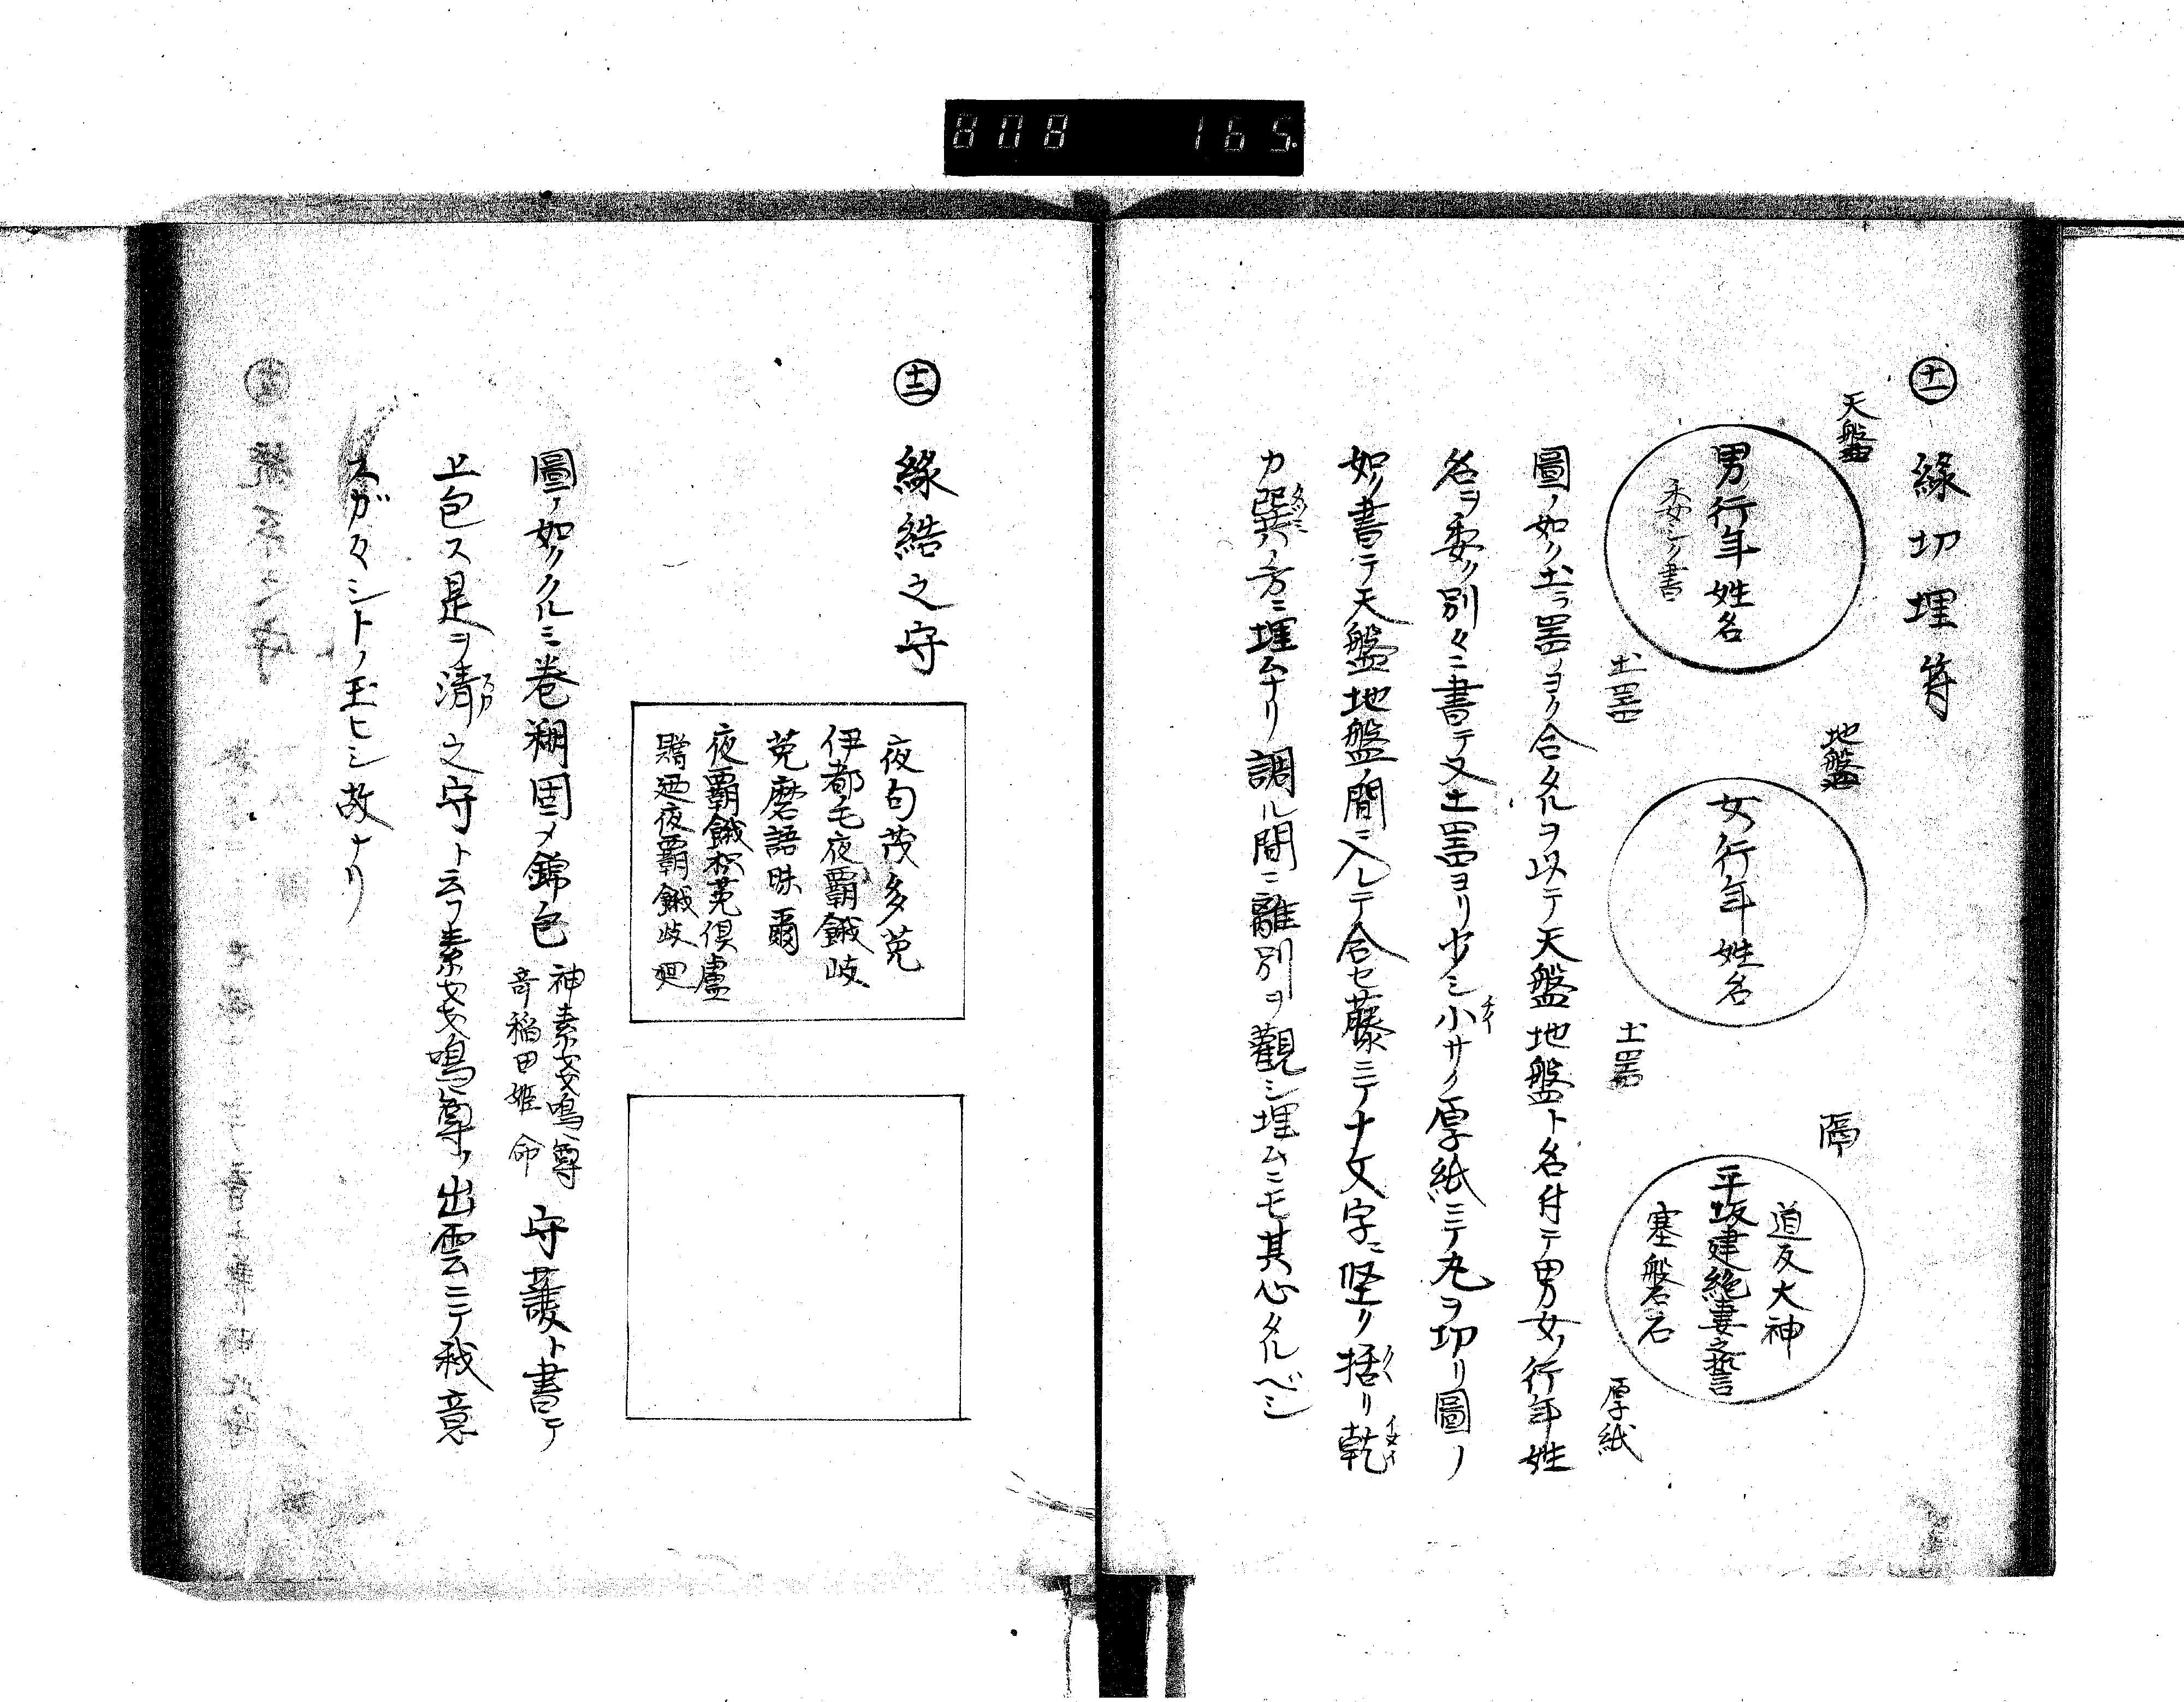 808 165.
十一 緣切埋符
天盤
男行年姓名
委シク書
土器
地盤
女行年姓名
土器
隔
道反大神
平坂建絶妻之誓
塞磐石
厚紙
圖ノ如ク土器ヨク合タルヲ以テ天盤地盤ト名付テ男女ノ行年姓
名ヲ委ク別々ニ書テ又土器ヨリ少シ小サク厚紙ニテ丸ヲ切リ圖ノ
如ク書テ天盤地盤ノ間ニ入レテ合セ藤ニテ十文字ニ堅ク括リ乾
カ巽ノ方ニ埋ムナリ調ル間ニ離別ヲ觀シ埋ムニモ其心タルベシ
十二 緣結之守
夜句茂多菟
伊都毛夜覇餓岐
菟磨語昧爾
夜覇餓枳菟倶盧
贈廼夜覇餓岐廻
圖ノ如クタルミ巻糊固メ錦包
神素戔嗚尊
奇稲田姫命
守護ト書テ
上包ス是ヲ清之守ト云フ素戔嗚尊ノ出雲ニテ我意
スガ々シトノ玉ヒシ故ナリ